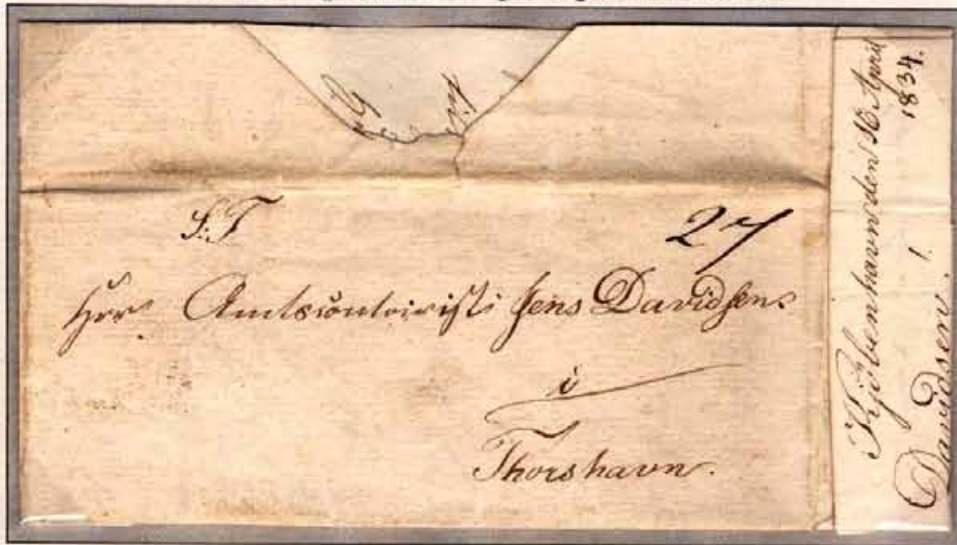 S: T
27
Herr Amtscontoirist Jens Davidsen
i
Thorshavn.
Kjøbenhavn den 16 April
1834.
Davidsen !